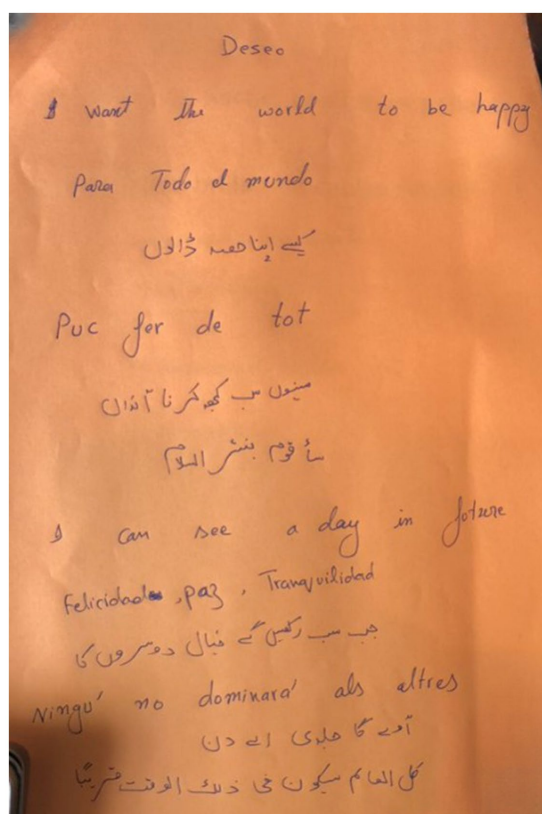 Deseo
I want the world to be happy
Para Todo el mundo
کیسے اپنا حصہ ڈالوں
Puc fer de tot
مینوں سب کچھ کرنا آندا
سأقوم بنشر السلام
I can see a day in foture
Felicidad, paz, Tranquilidad
جب سب رکھیں گے خیال دوسروں کا
Ningú no dominará als altres
آوے گا جلدی اے دن
كل العالم سيكون في ذلك الوقت قريبًا